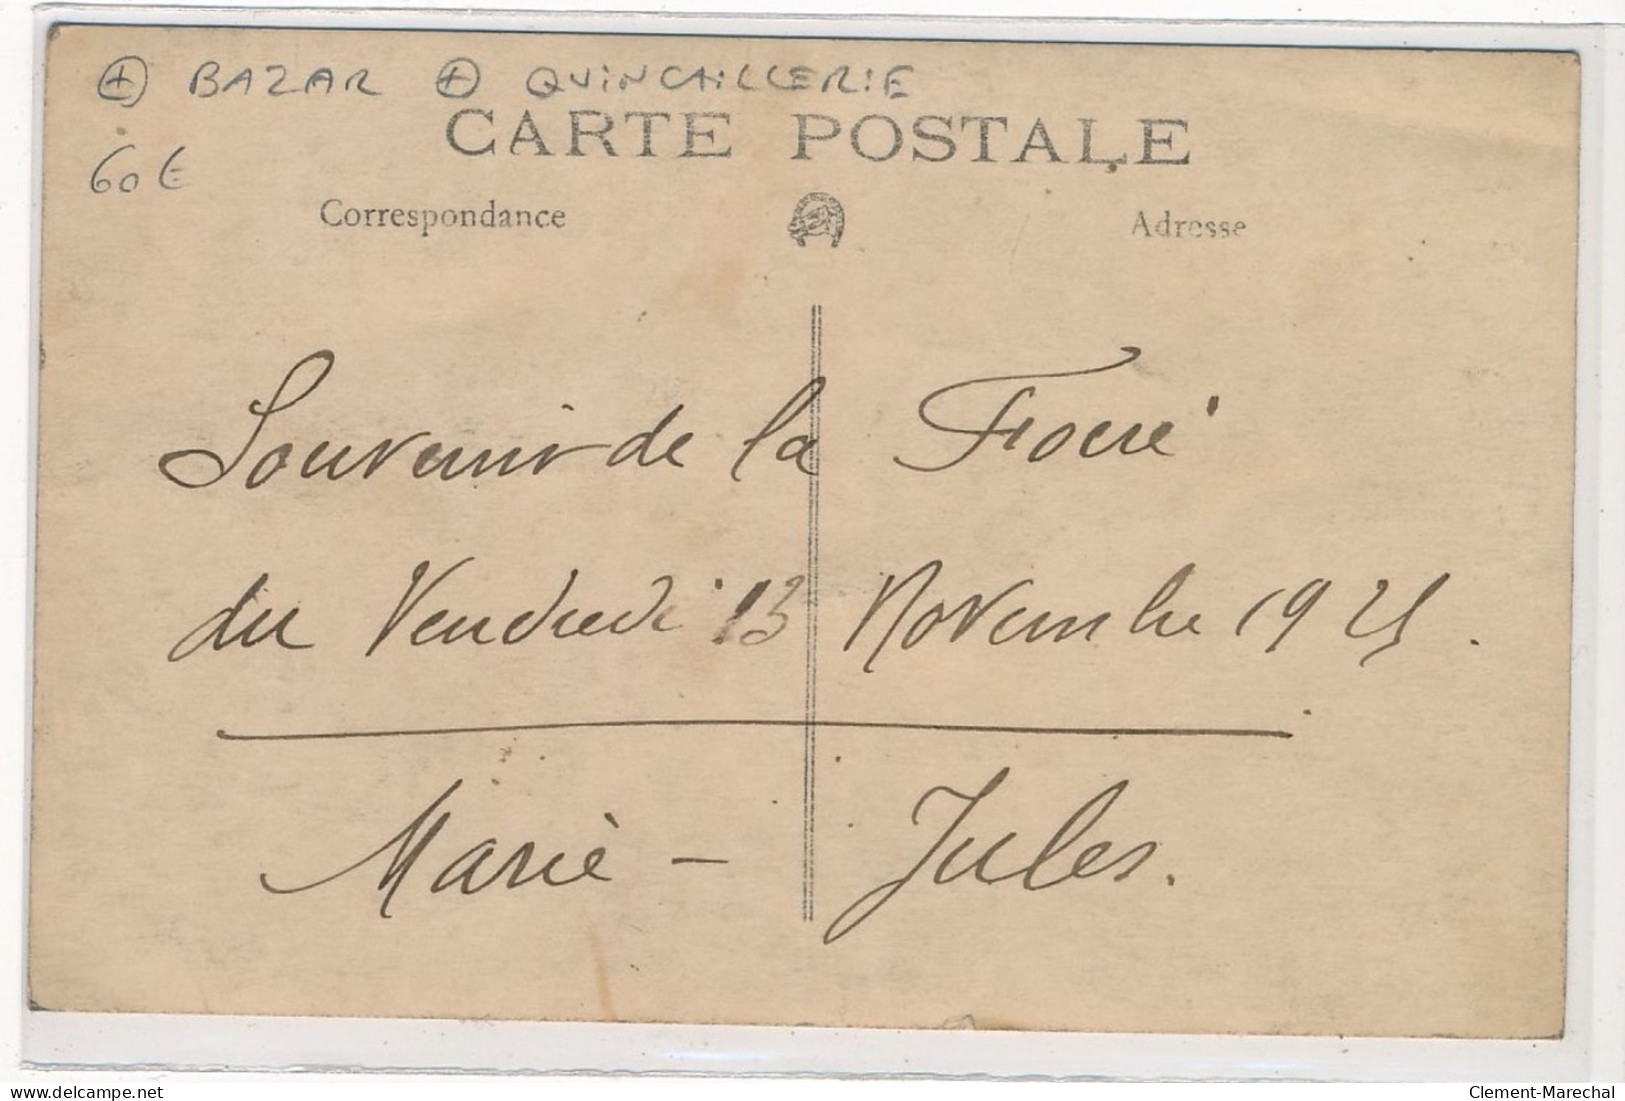 + BAZAR + QUINCAILLERIE
CARTE POSTALE
60 €
Correspondance
Adresse
Souvenir de la
du Vendredi 13 Novembre 1925.
Marie - Jules.
www.delcampe.net
Clement-Marechal